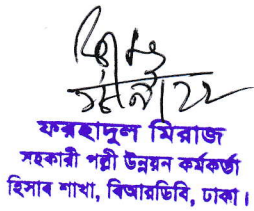 ফরহাদুল মিরাজ
সহকারী পল্লী উন্নয়ন কর্মকর্তা
হিসাব শাখা, বিআরডিবি, ঢাকা।